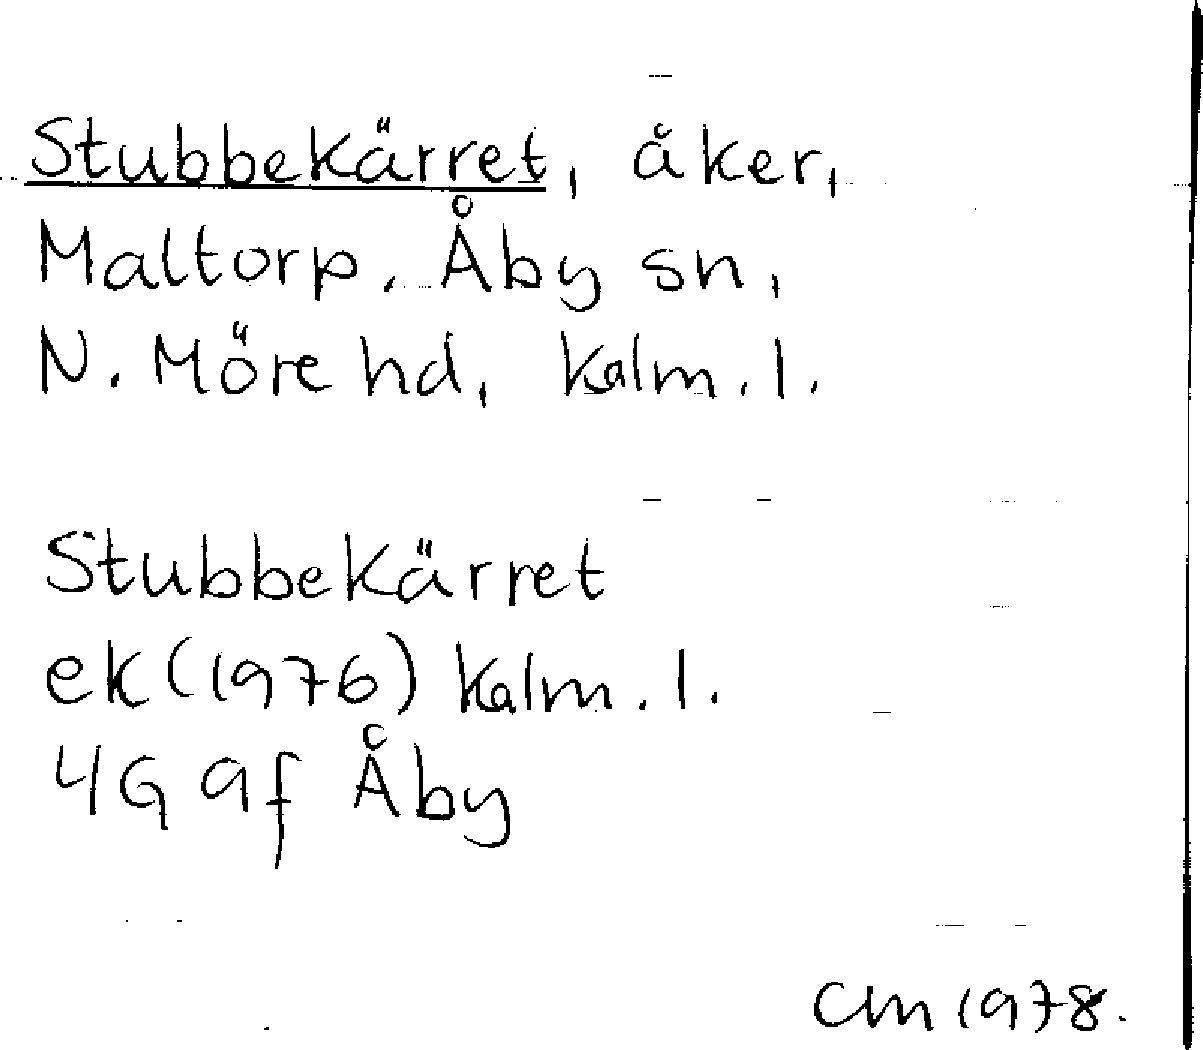 Stubbekärret, åker,
Maltorp, Åby sn,
N. Möre hd, Kalm. l.
Stubbekärret
ek (1976) Kalm. l.
4G 9f Åby
CM 1978.